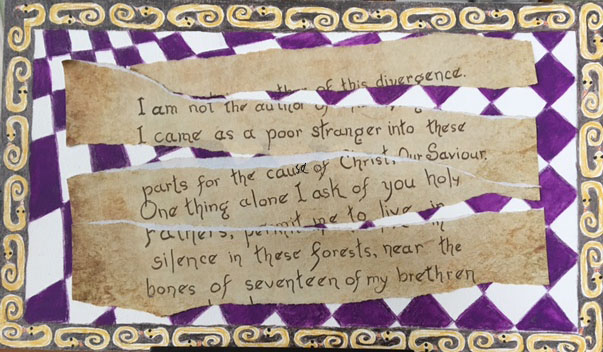 of this divergence.
I am not the author
I came as a poor stranger into these
parts for the cause of Christ, Our Saviour.
One thing alone I ask of you holy
Fathers, permit me to live in
silence in these forests, near the
bones of seventeen of my brethren